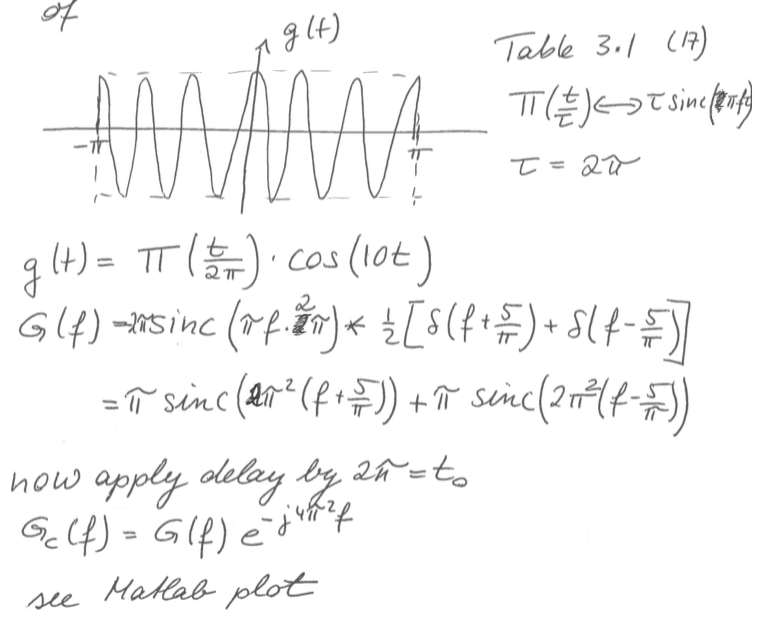 of
g(t)
-π
π
Table 3.1 (17)
Π(t/τ) ⟺ τ sinc(πfτ)
τ = 2π
g(t) = Π(t/2π) · cos(10t)
G(f) = 2π sinc(πf·2π) * 1/2 [δ(f+5/π) + δ(f-5/π)]
= π sinc(2π²(f+5/π)) + π sinc(2π²(f-5/π))
now apply delay by 2π = t₀
G_c(f) = G(f) e^{-j4π²f}
see Matlab plot